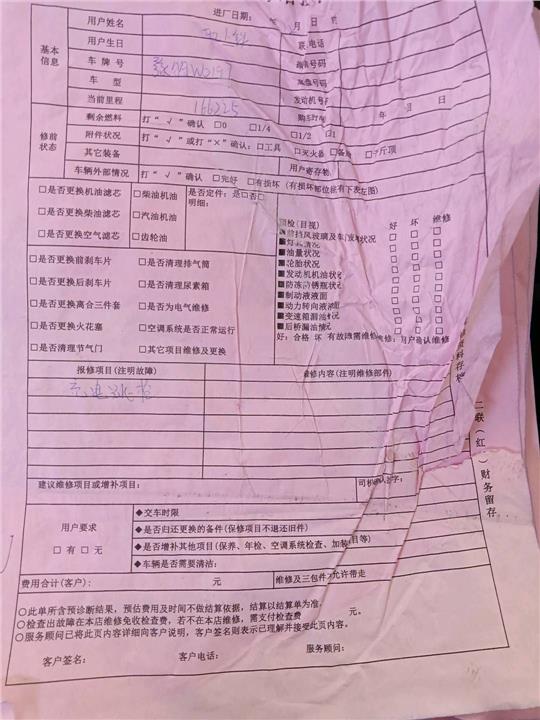 进厂日期： 年 月 日
基本信息
用户姓名
联 电话
用户生日
车 牌 号
车 型
当前里程 166225
发动机号
年 月 日
修前状态
剩余燃料 打“√”确认 □0 □1/4 □1/2 □1
附件状况 打“√”或打“×”确认：□工具 □灭火器 □备胎 □千斤顶
其它装备 用户寄存物
车辆外部情况 打“√”确认 □完好 □有损坏（有损坏部位标有下表左图）
□是否更换机油滤芯 □柴油机油 是否定件：是□否□
□是否更换柴油滤芯 □汽油机油 明细：
□是否更换空气滤芯 □齿轮油
□是否更换前刹车片 □是否清理排气筒
□是否更换后刹车片 □是否清理尿素箱
□是否更换离合三件套 □是否为电气维修
□是否更换火花塞 □空调系统是否正常运行
□是否清理节气门 □其它项目维修及更换
检(目视) 好 坏 维修
前挡风玻璃及车门玻璃状况
灯具情况
■油量状况
■轮胎状况
■发动机机油状
■防冻防锈瓶状
■制动液液面
■动力转向液液面
■变速箱漏油情况
■后桥漏油情况
好：合格 坏 有故障需维修 维修：用户确认维修
报修项目(注明故障) 维修内容(注明维修部件)
建议维修项目或增补项目： 司机确认签字：
用户要求
□有 □无
◆交车时限
◆是否归还更换的备件(保修项目不退还旧件)
◆是否增补其他项目(保养、年检、空调系统检查、加装项目等)
◆车辆是否需要清洁：
费用合计(客户)： 元 维修及三包件不允许带走
○此单所含预诊断结果，预估费用及时间不做结算依据，结算以结算单为准。
○检查出故障在本店维修免收检查费，若不在本店维修，需支付检查费 元。
○服务顾问已将此页内容详细向客户说明，客户签名则表示已理解并接受此页内容。
客户签名： 客户电话： 服务顾问：
二联（红 ）财务留存